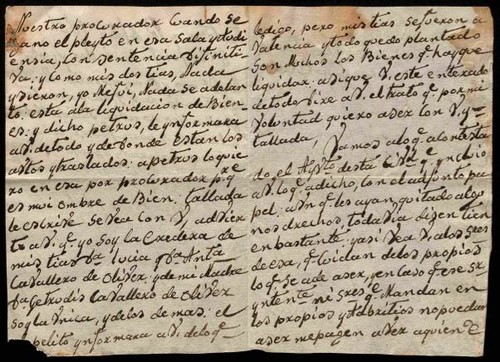 Nuestro procurador Cuando se
ano el pleyto en esa Sala y Audi
ensia, Con sentencia difiniti
va; y como mis dos tias, Nada
pidieron, yo Me fui, Nada se adelan
to: esta ala liquidacion de Bien
es: y dicho petros, le ynformara
a V. de todo y de donde estan los
autos y traslados: a petros lo quie
ro en esa por procurador pqe
es mui ombre de Bien: Callada
le escrivire Se vea con V, advier
to a V. qe yo soy la Eredera de
mis tias Da lucia y Da Anta
Cavallero de Oliver y de mi Madre
Da Getrudis Cavallero de Oliver
Soy la Unica, y de los de mas: el
pelito ynformara a V. de lo qe
le digo, pero mis tias se fueron a
Valencia y todo quedo plantado
Son Muchos los Bienes qe hay que
liquidar: a si que V, este enterado
de todo dire a V. el trato qe por mi
Voluntad quiero aser con V. y
tallada,
Vamos alo qe a contesta
do el Aynto desta Ciud y yncluio
a V. lo qe a dicho, con el adjunto pa
pel, aun qe les ayan quitado algu
nos drechos todavia dizen tien
en bastante: y asi Vea V, alos Sres
de esa, qe Cuidan delos propios
lo qe se a de aser, en caso qe ese Sr
yntente ni Sres qe Mandan en
los propios y Adbitrios no puedan
aser me pagen a ver a quien e